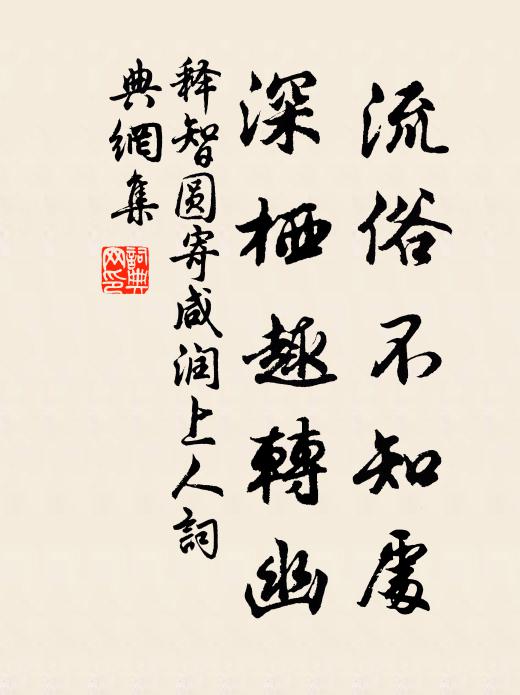 流俗不知處
深栖趣轉幽
释智圆寄咸润上人詞
典網集
詞典
网印